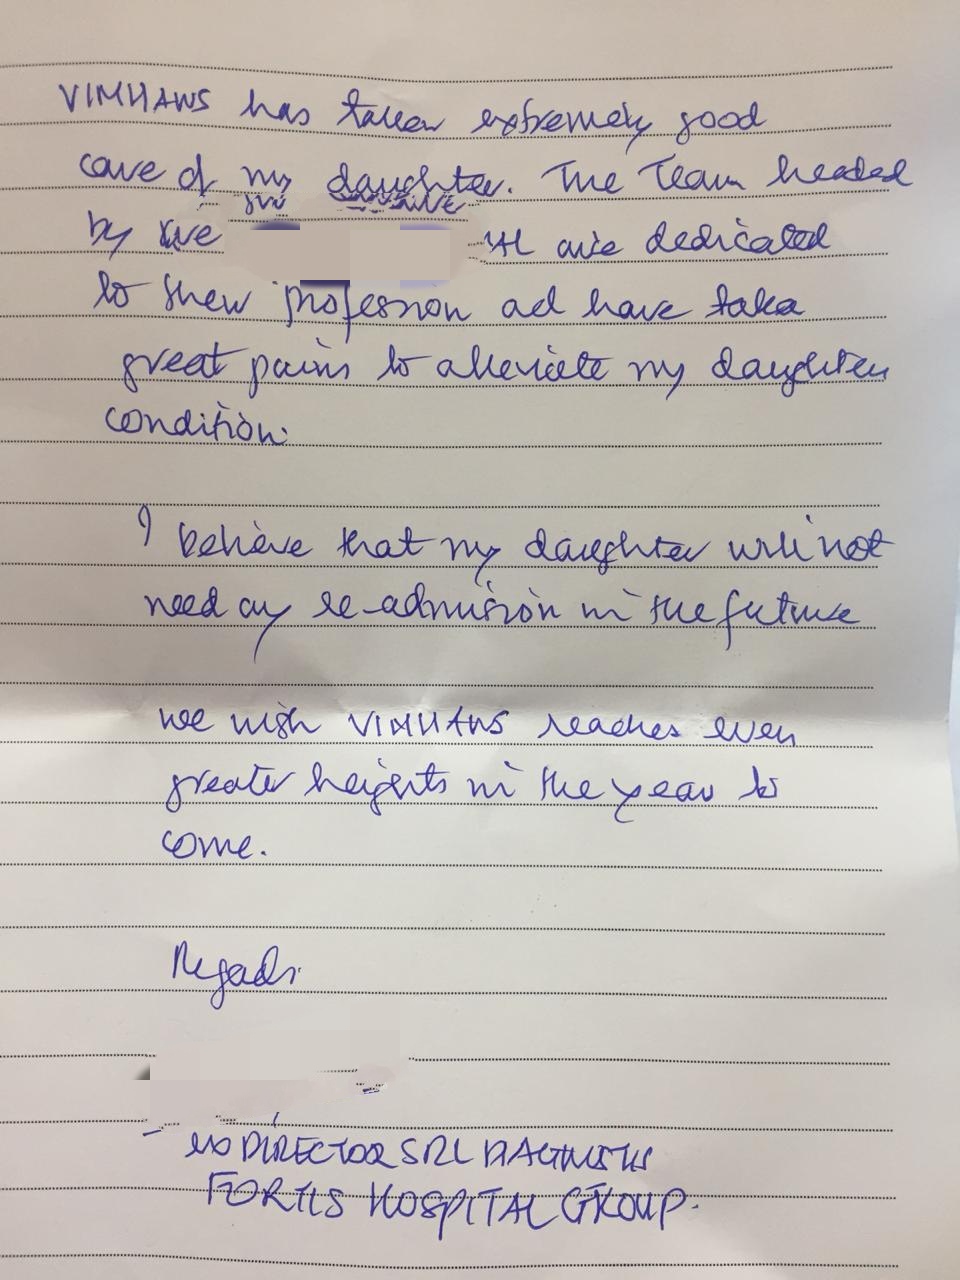 VIMHANS has taken extremely good
care of my daughter. The Team headed
by are dedicated
to their profession ad have taka
great pains to alleviate my daughter
condition.
I believe that my daughter will not
need any re-admission in the future
we wish VIMHANS reaches even
greater heights in the year to
come.
Regads
DIRECTOR SRL DIAGNOSTICS
FORTIS HOSPITAL GROUP.